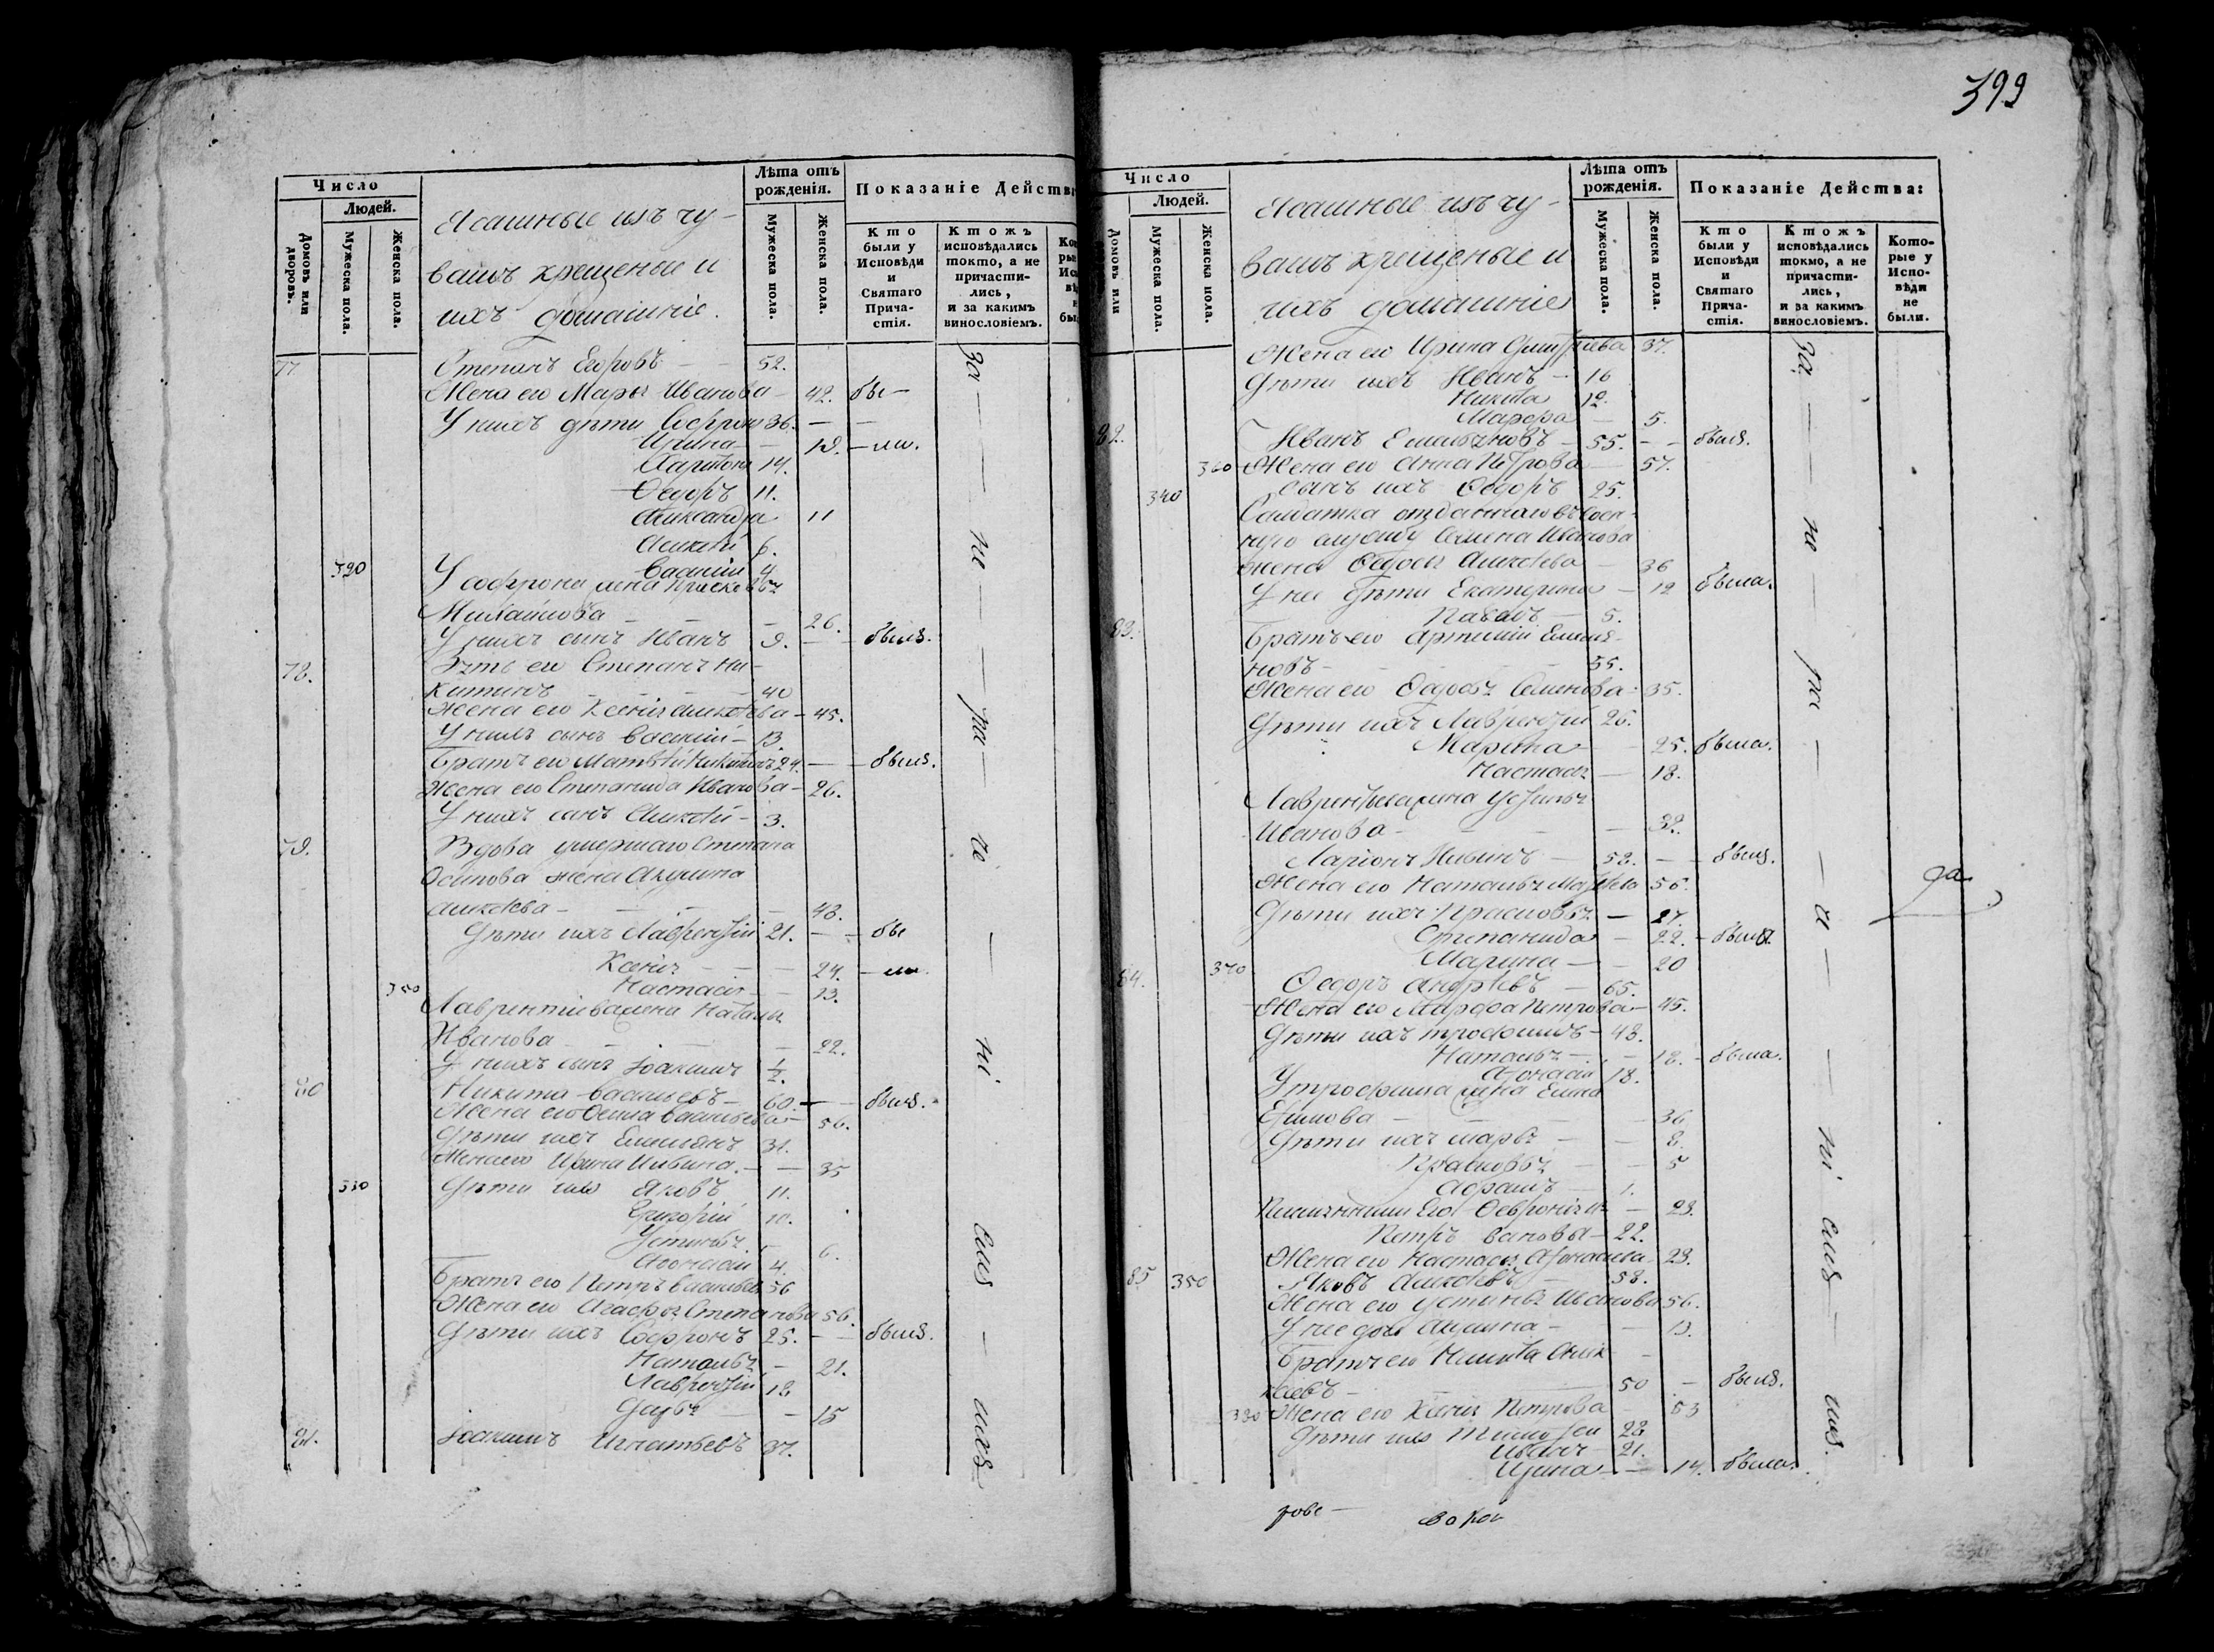 399
Число
Людей.
Домовъ или дворовъ.
Мужеска пола.
Женска пола.
Ясашные изъ чу-
вашъ крещеные и
ихъ домашніе.
Лѣта отъ рожденія.
Мужеска пола.
Женска пола.
Показаніе Действ
Кто были у Исповѣди и Святаго Прича-стія.
Ктожъ исповѣдались токмо, а не причасти-лись, и за какимъ винословіемъ.
77 Степанъ Егоровъ 52.
Жена его Марья Иванова 42. бы-
У нихъ дѣти Софронъ 36.
Ирина ли.
Харитонъ 14.
Ѳедоръ 11.
Александра 11
Алексѣй 6.
320 Василій 4
У Софрона жена Прасковья
Михайлова 26.
У нихъ сынъ Иванъ 9. были.
78. Зять его Степанъ Ни-
китинъ 40
Жена его Ксенія Алексѣева 45.
У нихъ сынъ Василій 13.
Братъ его Матвѣй Никитинъ 24. были.
Жена его Степанида Иванова 26.
У нихъ сынъ Алексѣй 3.
79. Вдова умершаго Степана
Осипова жена Акулина
Алексѣева 48.
Дѣти ихъ Лаврентій 21. бы
Ксенія 24. ли.
350 Настасья 13.
Лаврентіева жена Наталья
Иванова 22.
У нихъ сынъ Іоакимъ 1/2.
80 Никита Васильевъ 60. были.
Жена его Васильева 56.
Дѣти ихъ Емельянъ 31.
Жена его Ирина 35
330 Дѣти ихъ Яковъ 11.
Григорій 10.
Устинья 6.
Аѳонасій 4.
Братъ его Петръ Васильевъ 56
Жена его Агафья Степанова 56.
Дѣти ихъ Софронъ 25. были.
Наталья 21.
Лаврентій 18
Дарья 15
81. Іоакимъ Игнатьевъ 37.
Число
Людей.
Домовъ или
Мужеска пола.
Женска пола.
Ясашные изъ чу-
вашъ крещеные и
ихъ домашніе
Лѣта отъ рожденія.
Мужеска пола.
Женска пола.
Показаніе Действа:
Кто были у Исповѣди и Святаго Прича-стія.
Ктожъ исповѣдались токмо, а не причасти-лись, и за какимъ винословіемъ.
Кото-рые у Испо-вѣди не были.
Жена его Ирина Дмитріева 37.
Дѣти ихъ Иванъ 16
Никита 12.
Марфа 5.
82. Иванъ Емельяновъ 55. были.
360 Жена его Анна Петрова 57.
340 Сынъ ихъ Ѳедоръ 25.
Салдатка отданнаго въ воен-
ную службу Семена Иванова
жена Ѳедосья Алексѣева 36
У нее дѣти Екатерина 12 была.
Павелъ 5.
83. Братъ его Артемій Емелья-
новъ 55.
Жена его Ѳедосья Семенова 35.
Дѣти ихъ Лаврентій 26.
Марина 25. была.
Настасья 18.
Лаврентьева жена Устинья
Иванова 32.
Ларіонъ 52. были.
Жена его Наталья 56.
Дѣти ихъ Прасковья 27.
Степанида 22. были.
370 Марина 20
84. Ѳедоръ Андрѣевъ 65.
Жена его Марфа Петрова 45.
Дѣти ихъ Трофимъ 43.
Наталья 18. была.
Аѳонасій 18.
У Трофима жена Елена
Ефимова 36
Дѣти ихъ Марья 8.
Прасковья 5
Абрамъ 1.
Ѳевронія 23.
Петръ 22.
Жена его Настасья Аѳонасьева 23.
85 350 Яковъ Алексѣевъ 58.
Жена его Устинья Иванова 56.
У нее дочь Акулина
Братъ его Никита Алек-
сѣевъ 50 были.
380 Жена его Ксенія Петрова 53
Дѣти ихъ Тимоѳей 28
Иванъ 21.
Ирина 14. была.